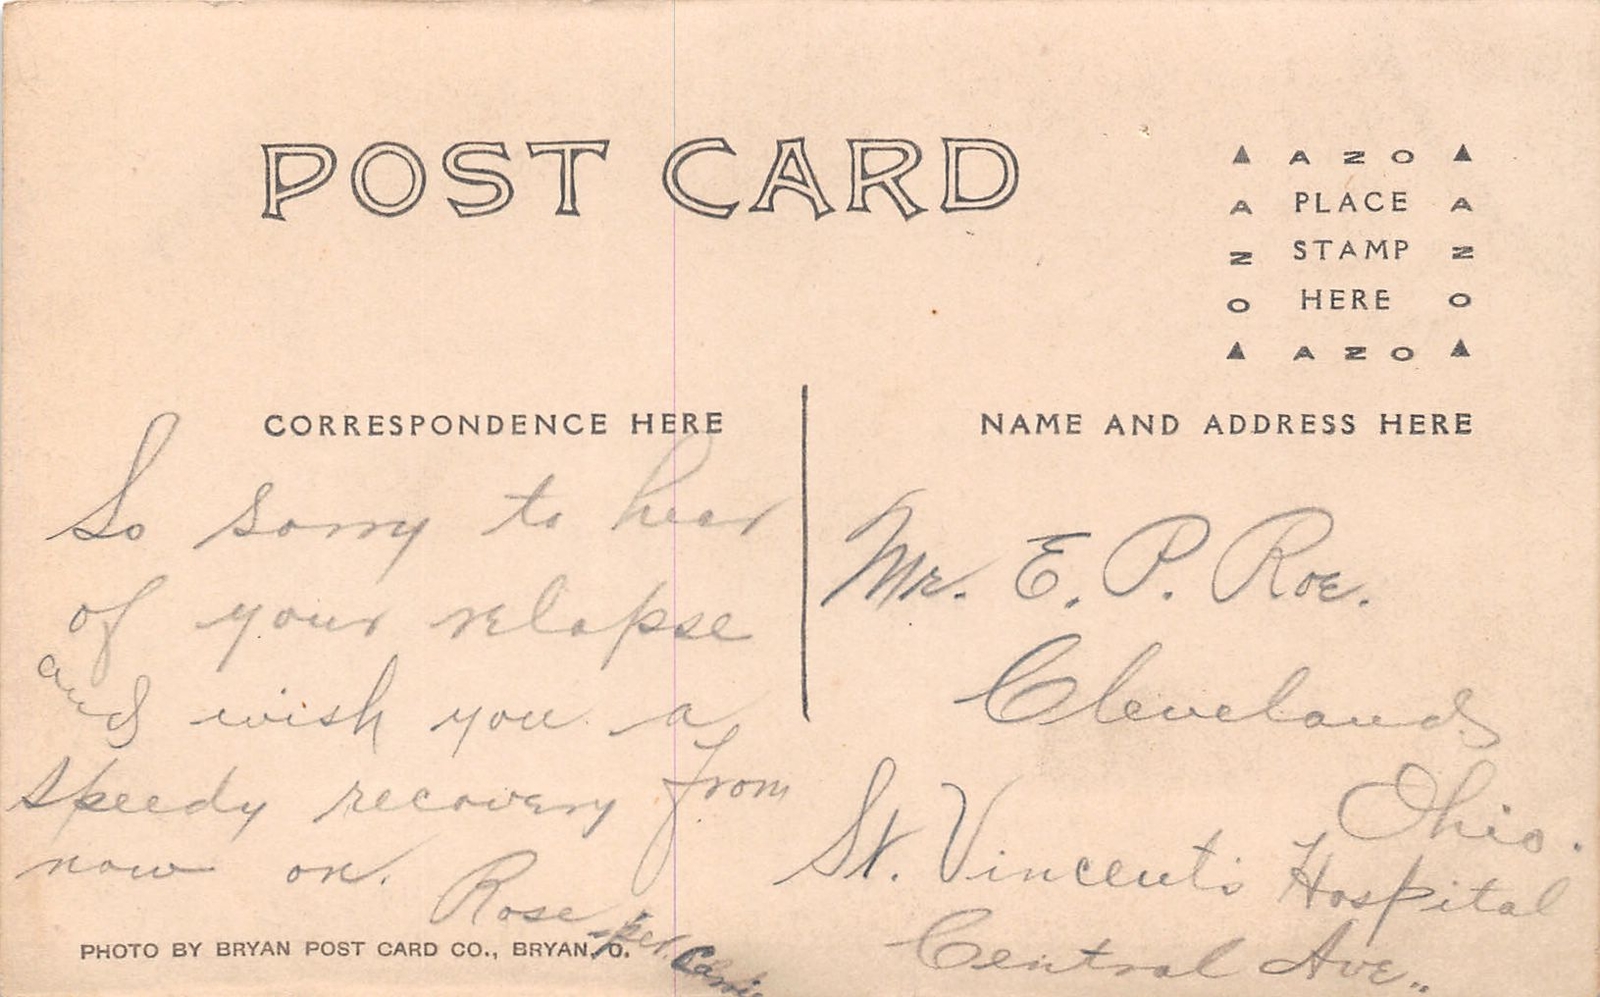 POST CARD
▲ AZO ▲
A PLACE A
Z STAMP Z
O HERE O
▲ AZO ▲
CORRESPONDENCE HERE
So sorry to hear
of your relapse
and wish you a
speedy recovery from
now on.
Rose per. Carrie
PHOTO BY BRYAN POST CARD CO., BRYAN, O.
NAME AND ADDRESS HERE
Mr. E. P. Roe.
Cleveland
Ohio.
St. Vincent's Hospital
Central Ave.,